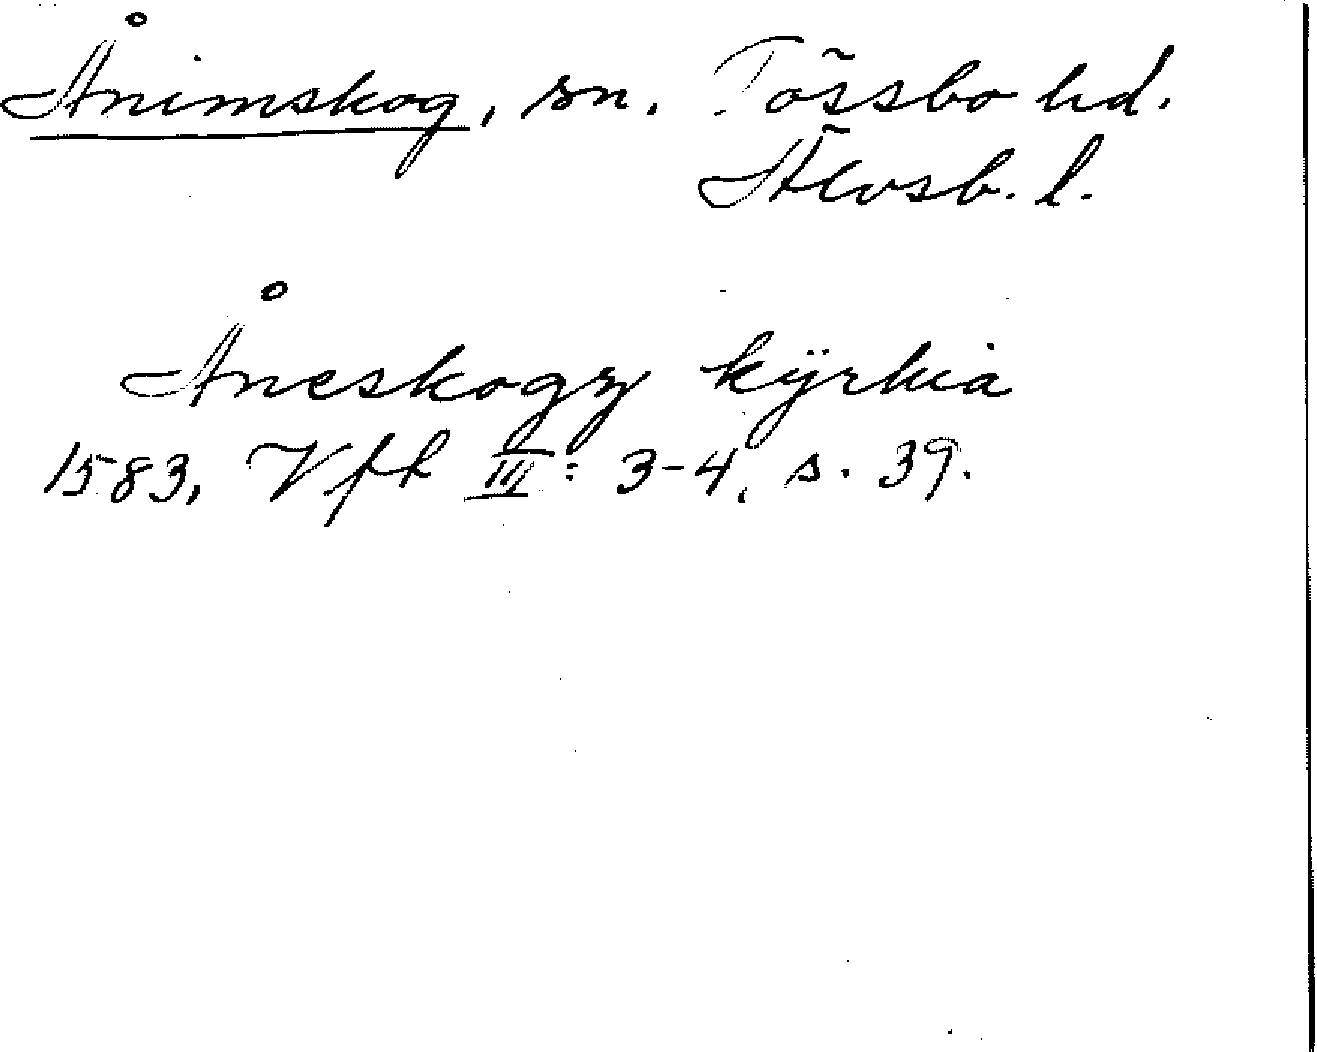 Ånimskog, sn. Tössbo hd.
Älvsb. l.
Åneskogz kÿrkia
1583, Vfk III: 3-4, s. 39.